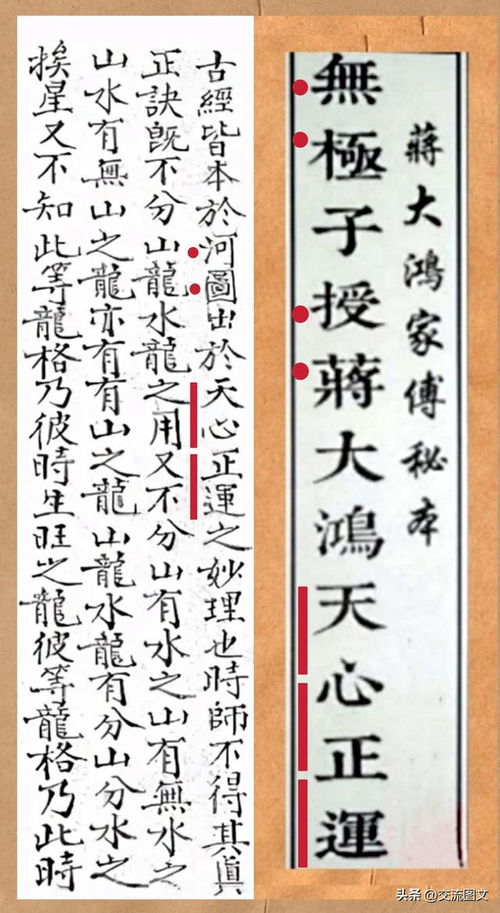 蔣大鴻家傅秘本
無極子授蔣大鴻天心正運
古經皆本於河圖出於天心正運之妙理也時師不得其眞
正訣旣不分山龍水龍之用又不分山有水之山有無水之
山水有無山之龍亦有有山之龍山龍水龍有分山分水之
挨星又不知此等龍格乃彼時生旺之龍彼等龍格乃此時
头条 @交流图文